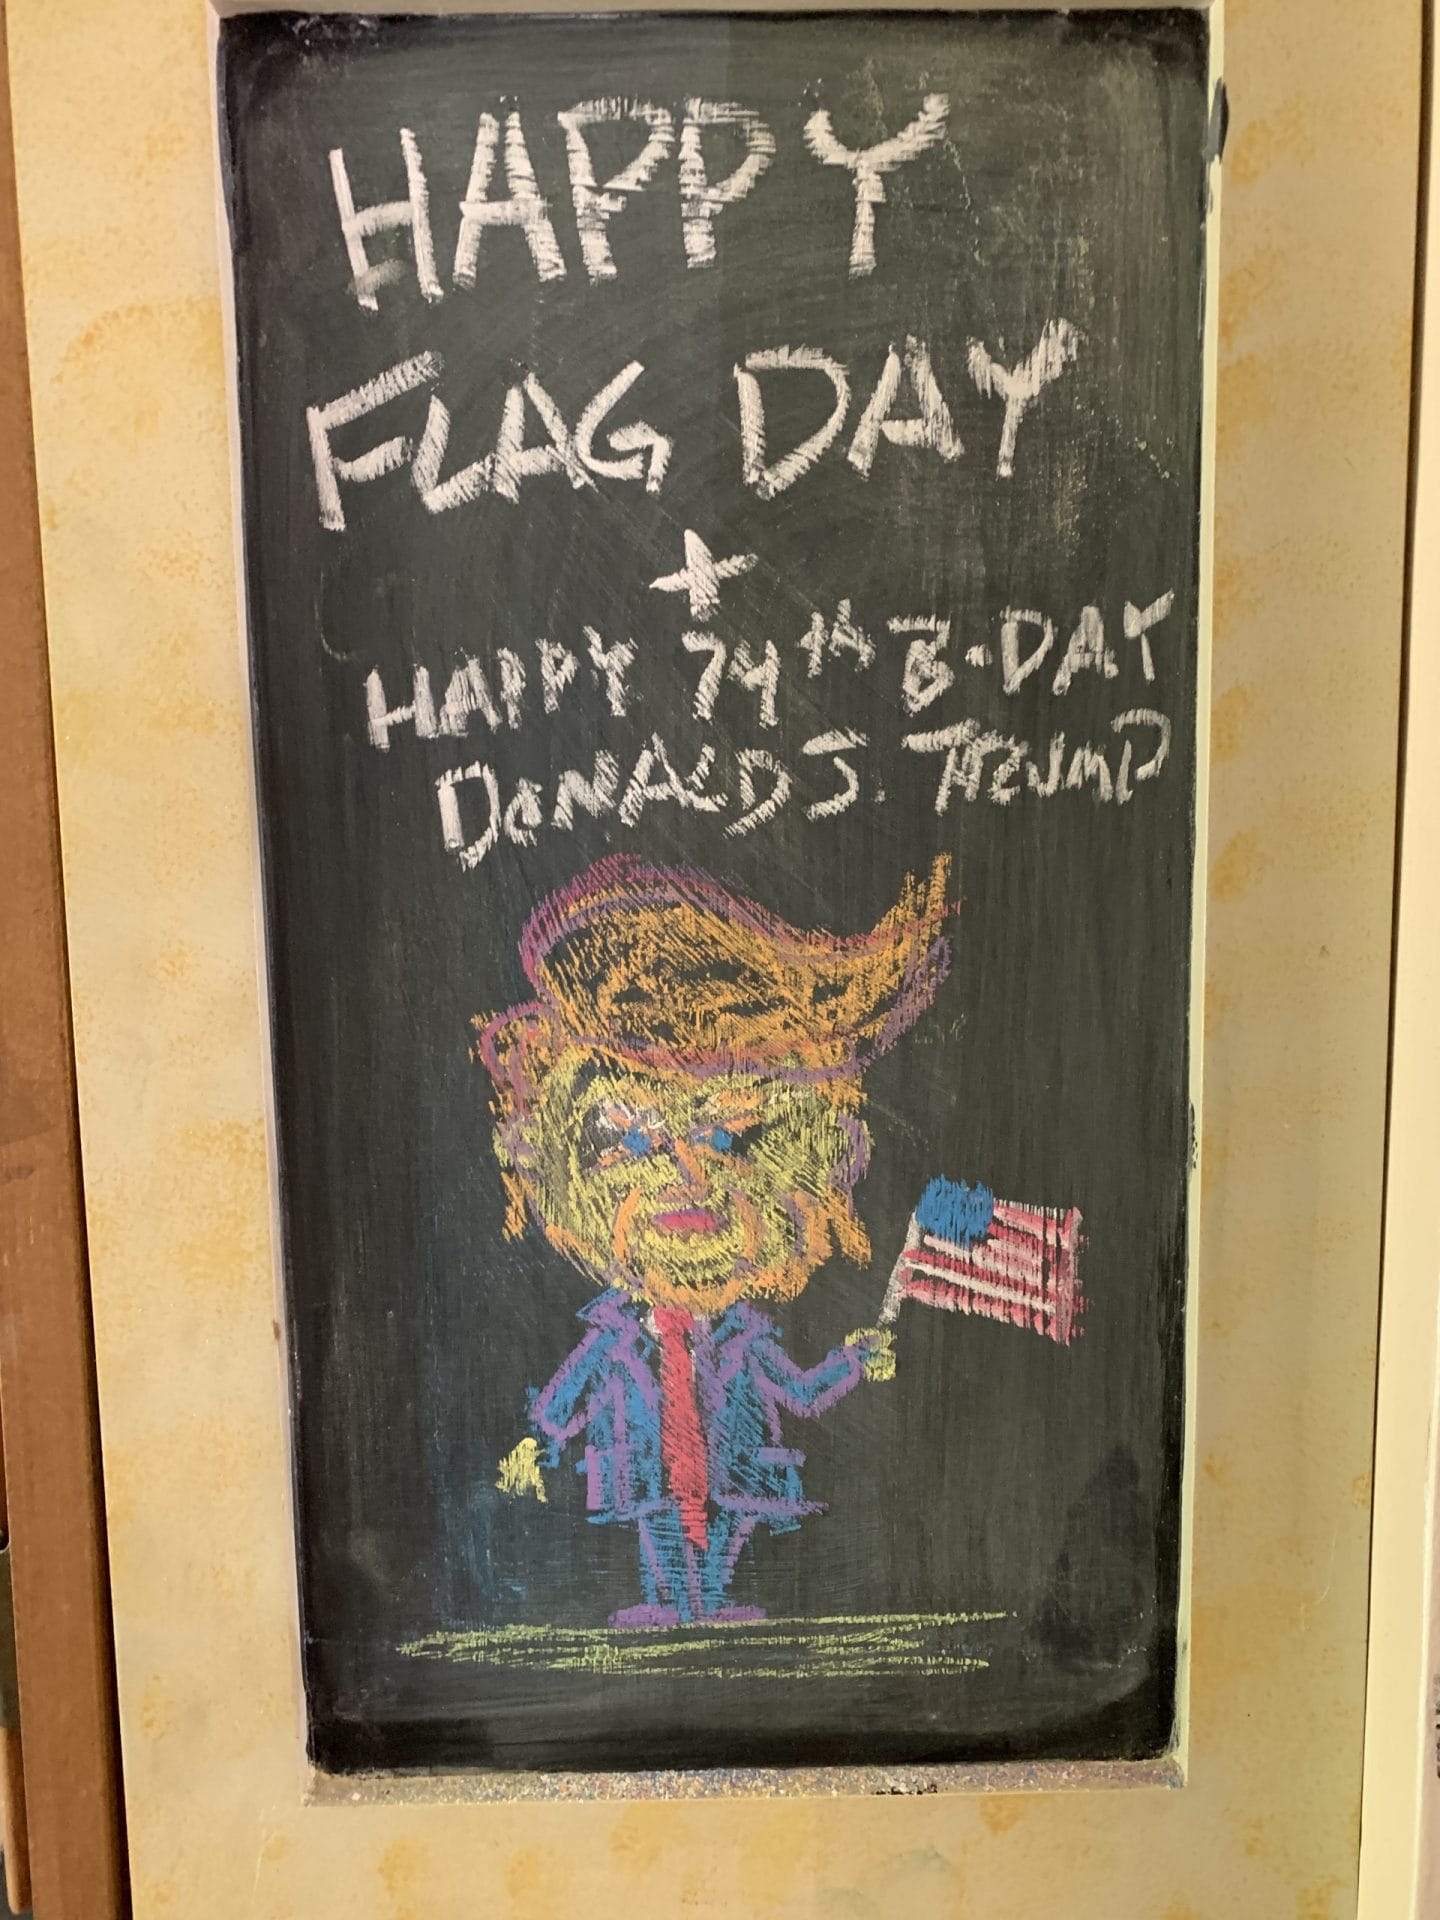 HAPPY
FLAG DAY
+
HAPPY 74th B-DAY
DONALD J. TRUMP